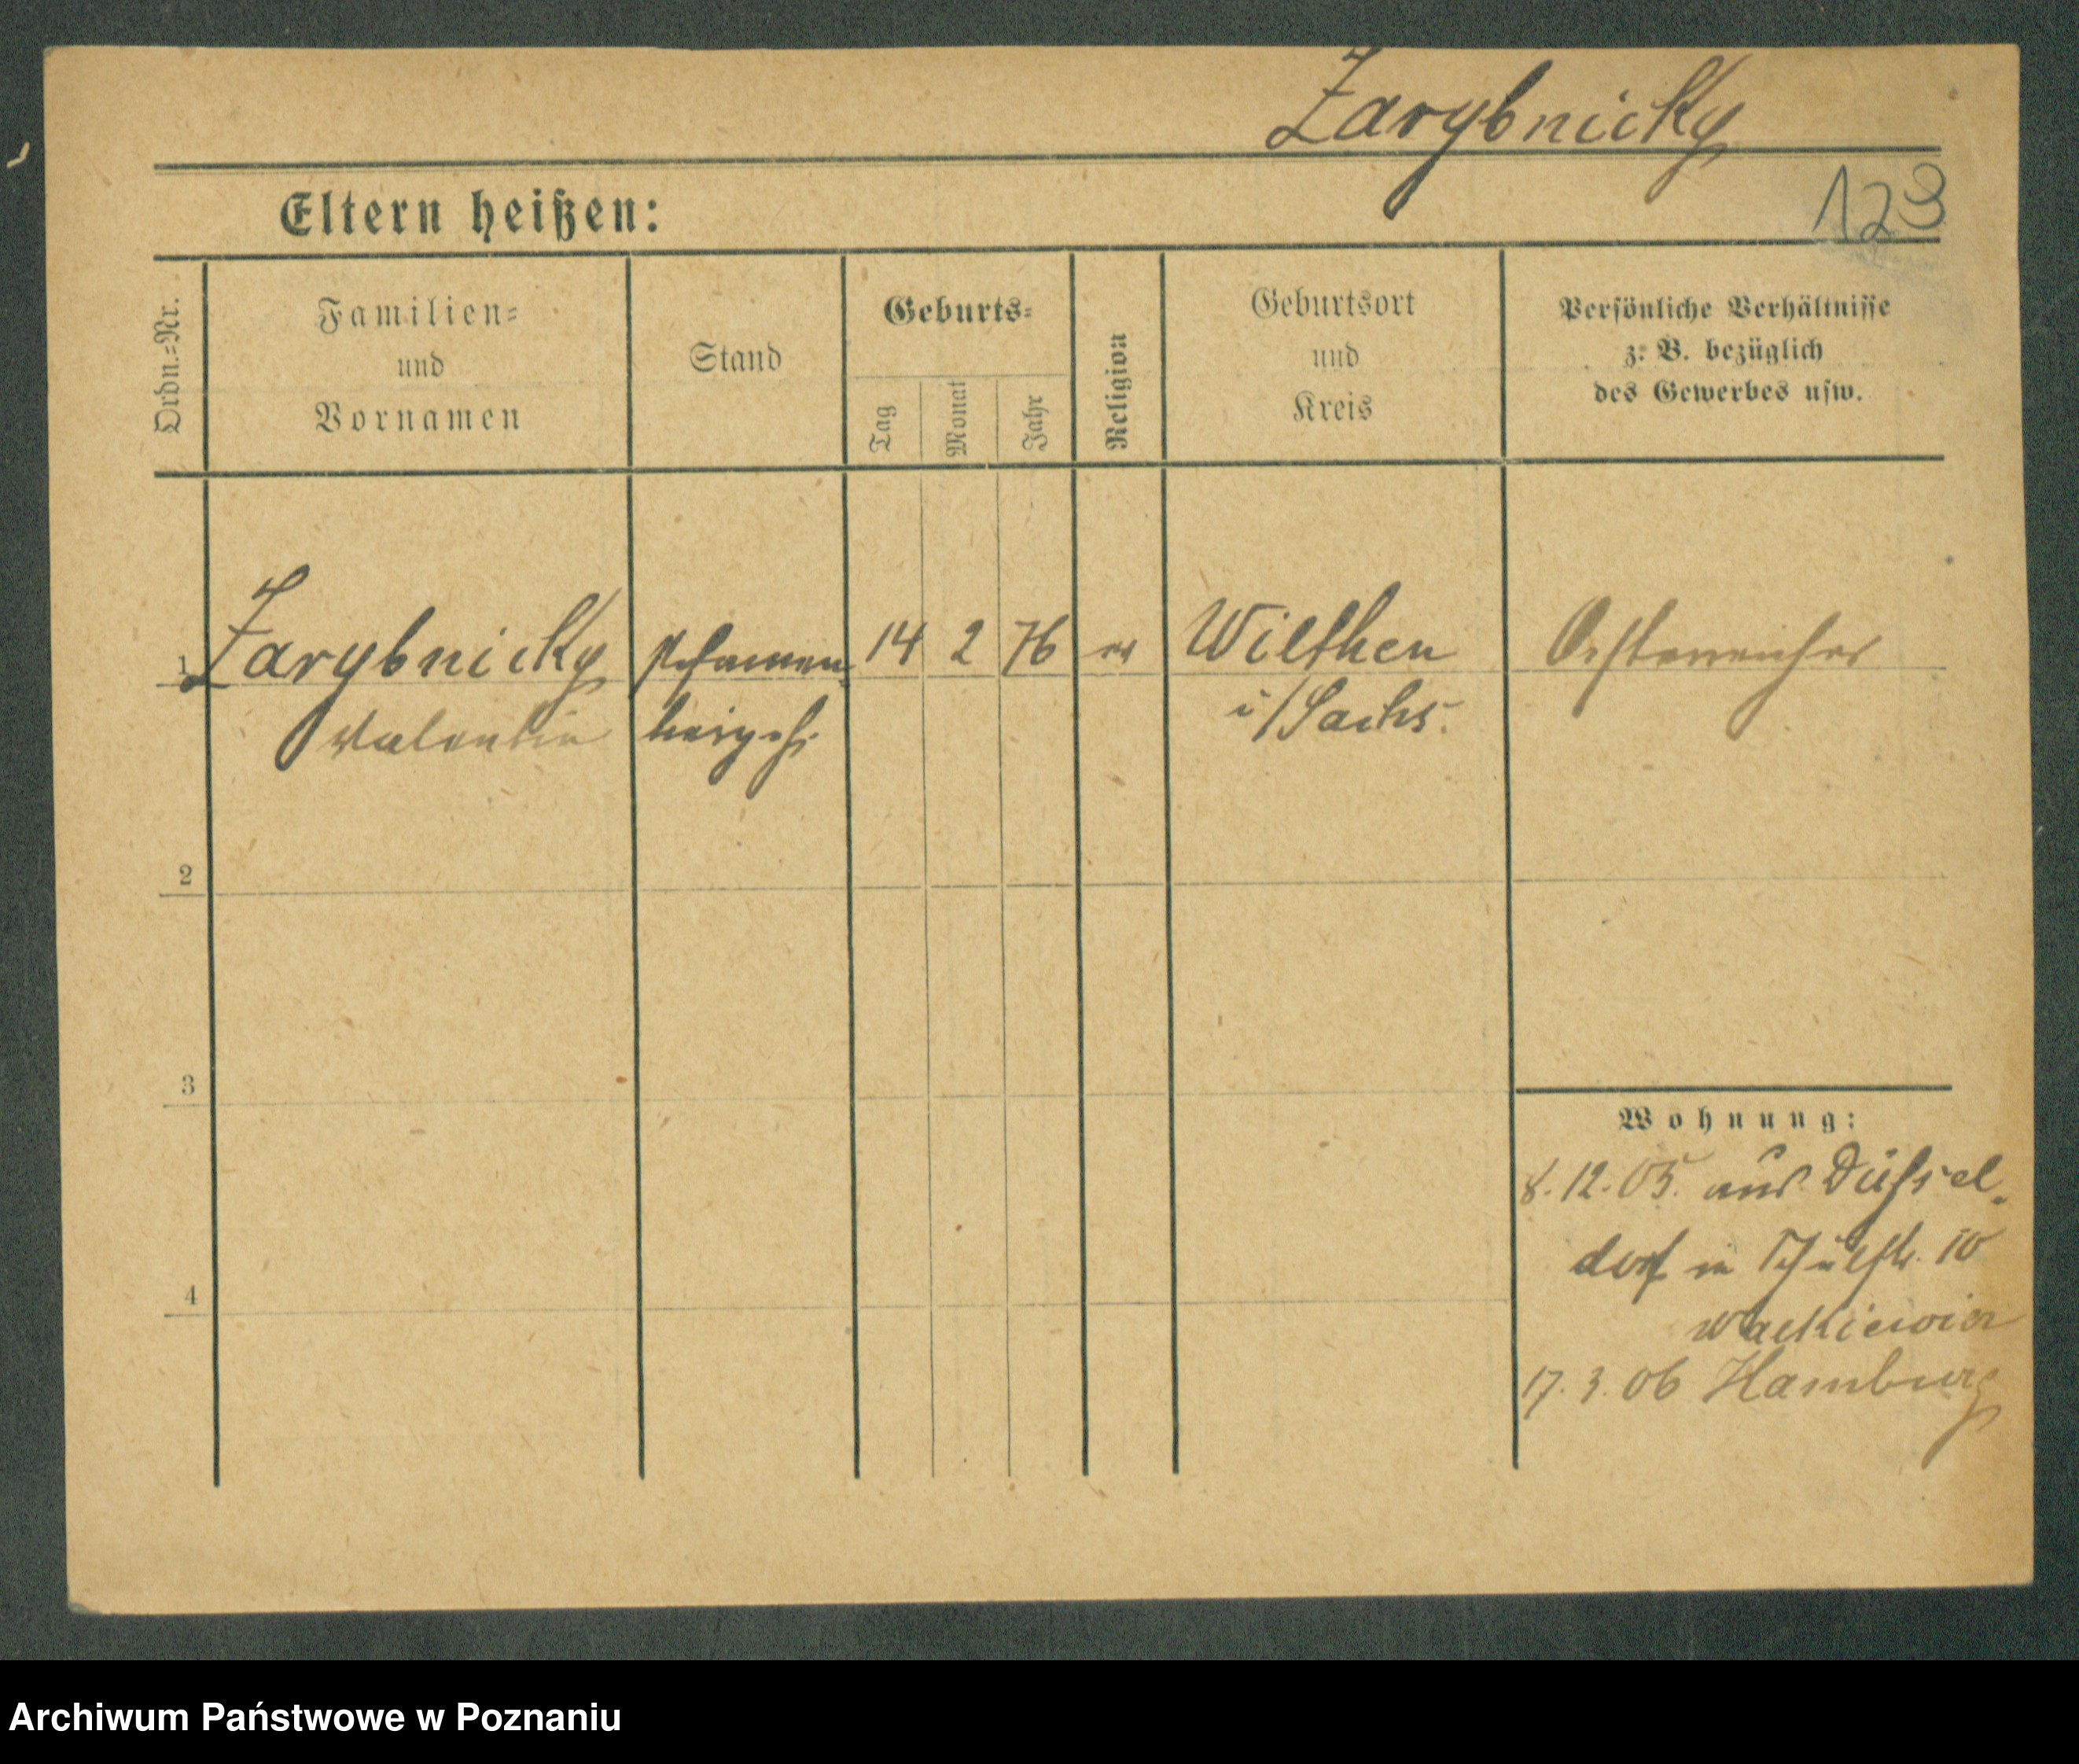 Zarybnicky
123
Eltern heißen:
Ordn.=Nr.
Familien=
und
Vornamen
Stand
Geburts=
Tag
Monat
Jahr
Religion
Geburtsort
und
Kreis
Persönliche Verhältnisse
z. B. bezüglich
des Gewerbes usw.
1 Zarybnicky 14 2 76 Wilthen Oesterreicher
Valentin i/Sachs.
2
3
4
Wohnung:
8.12.05. aus Düssel-
dorf in 10
17.3.06 Hamburg
Archiwum Państwowe w Poznaniu